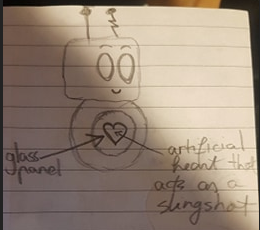 glass
panel
artificial
heart that
acts as a
slingshot